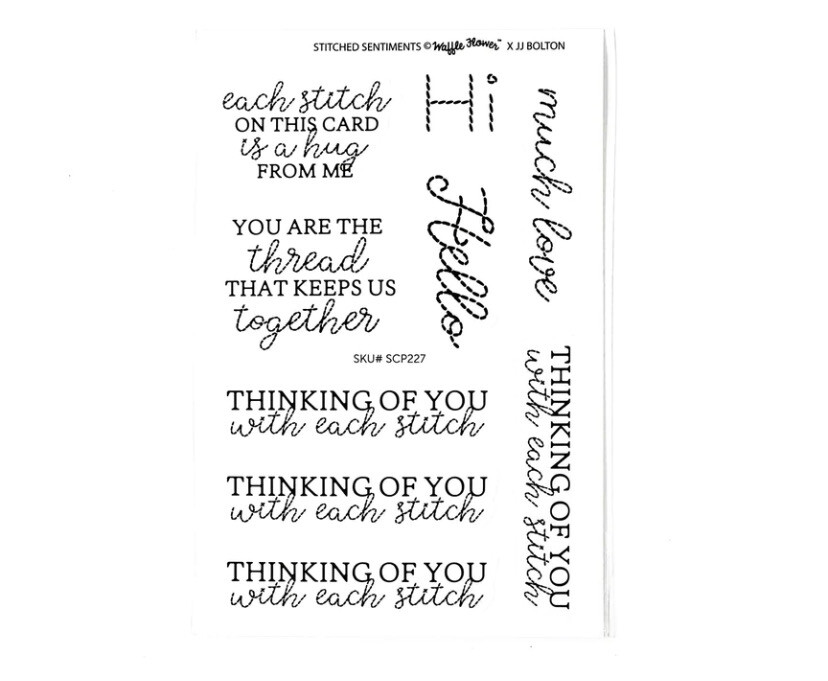 STITCHED SENTIMENTS © Waffle Flower™ X JJ BOLTON
each stitch
ON THIS CARD
is a hug
FROM ME
YOU ARE THE
thread
THAT KEEPS US
together
Hi
Hello
much love
SKU# SCP227
THINKING OF YOU
with each stitch
THINKING OF YOU
with each stitch
THINKING OF YOU
with each stitch
THINKING OF YOU
with each stitch